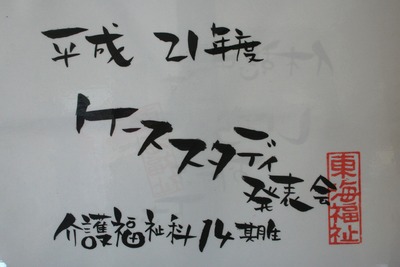 平成 21年度
ケーススタディ
発表会
介護福祉科14期生
東海福祉